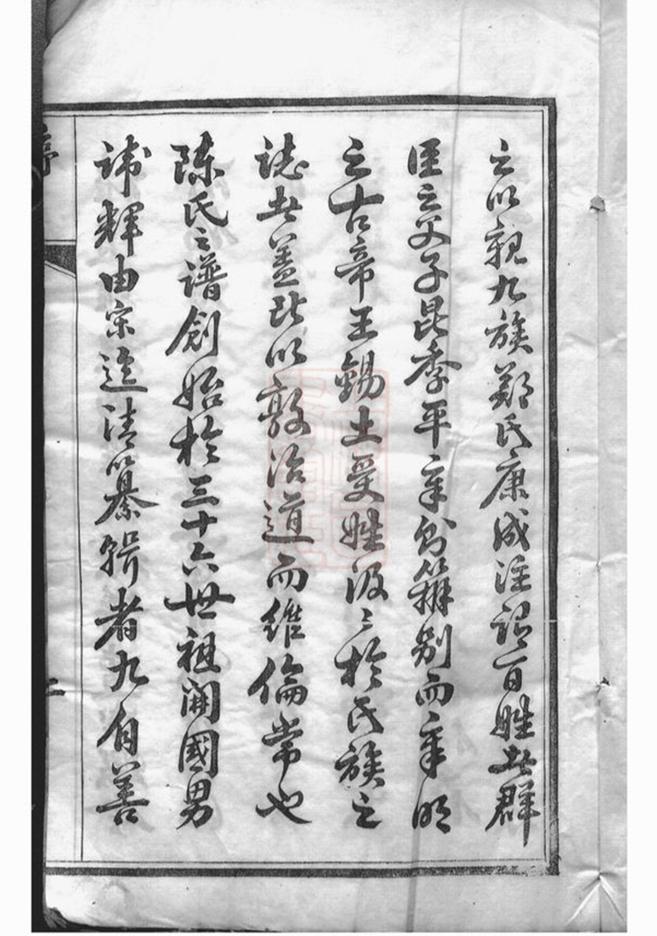 之以親九族鄭氏康成注謂百姓者群
臣之父子昆季平章別而章明
之古帝王錫土受姓汲〻於氏族之
誌者蓋所以敦治道而維倫常也
陳氏之譜創始於三十六世祖開國男
諱輝由宋迄清纂輯者九自善
序
二